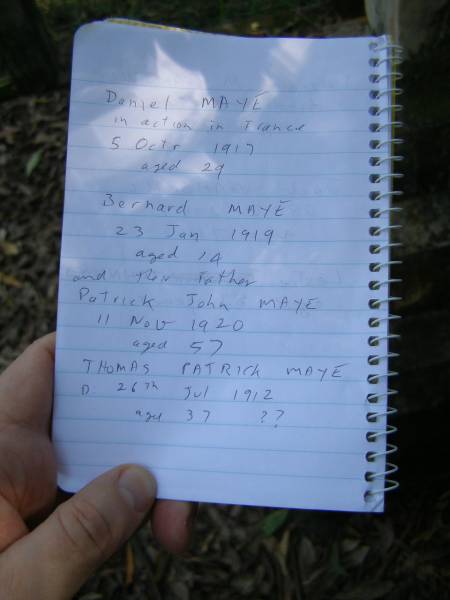 Daniel MAYE
in action in France
5 Octr 1917
aged 29
Bernard MAYE
23 Jan 1919
aged 14
and their Father
Patrick John MAYE
11 Nov 1920
aged 57
THOMAS PATRICK MAYE
D. 26th Jul 1912
age 37 ??